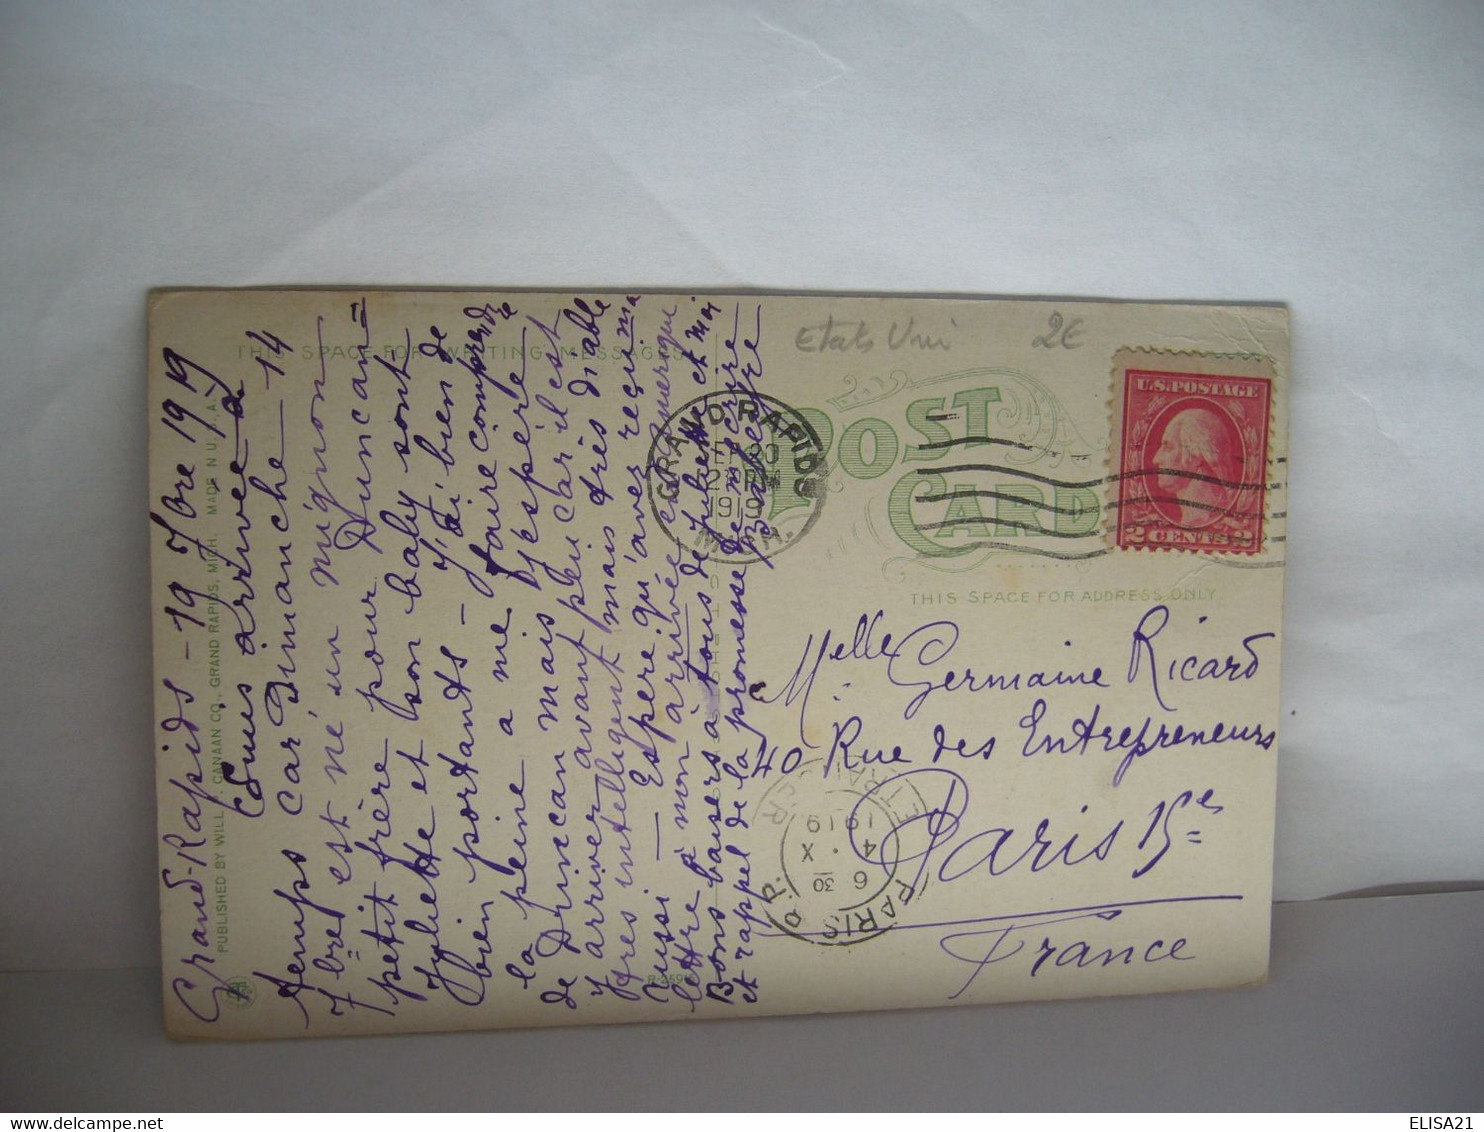 Grand-Rapids - 19 7bre 1919
Suis arrivée à
temps car Dimanche 14
7bre est né un mignon
petit frère pour Duncan =
Juliette et son baby sont
bien portants - J'ai bien de
la peine a me faire comprendre
de Duncan mais j'espère
y arriver avant peu car il est
très intelligent mais très diable
aussi - Espère qu'avez reçu ma
lettre à mon arrivée en Amerique
Bons baisers à tous de Juliette et Moi
et rappel de la promesse de m'écrire
THIS SPACE FOR WRITING MESSAGES
PUBLISHED BY WILL P. CANAAN CO., GRAND RAPIDS, MICH. MADE IN U.S.A.
Etats Uni 2€
GRAND RAPIDS
1919
MICH.
POST
CARD
U.S. POSTAGE
2 CENTS 2
THIS SPACE FOR ADDRESS ONLY
Melle Germaine Ricard
40 Rue des Entrepreneurs
Paris 15e
France
PARIS R.P.
ETRANGER
6 30
4 · X
1919
ELISA21